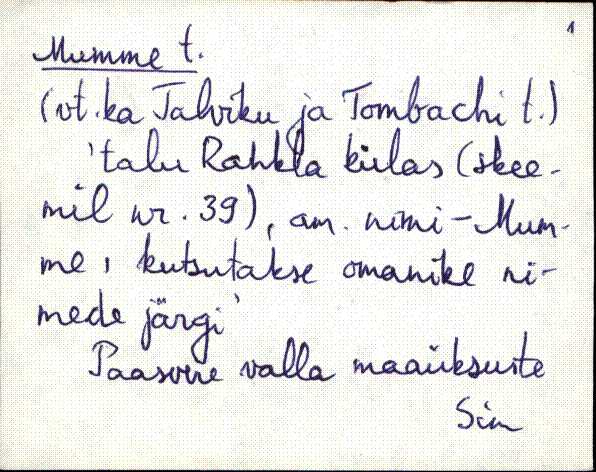 1
Mumme t.
(vt. ka Talviku ja Tombachi t.)
'talu Rahkla külas (skee-
mil nr. 39), am. nimi - Mum-
me, kutsutakse omanike ni-
mede järgi'
Paasvere valla maaüksuste
Sim